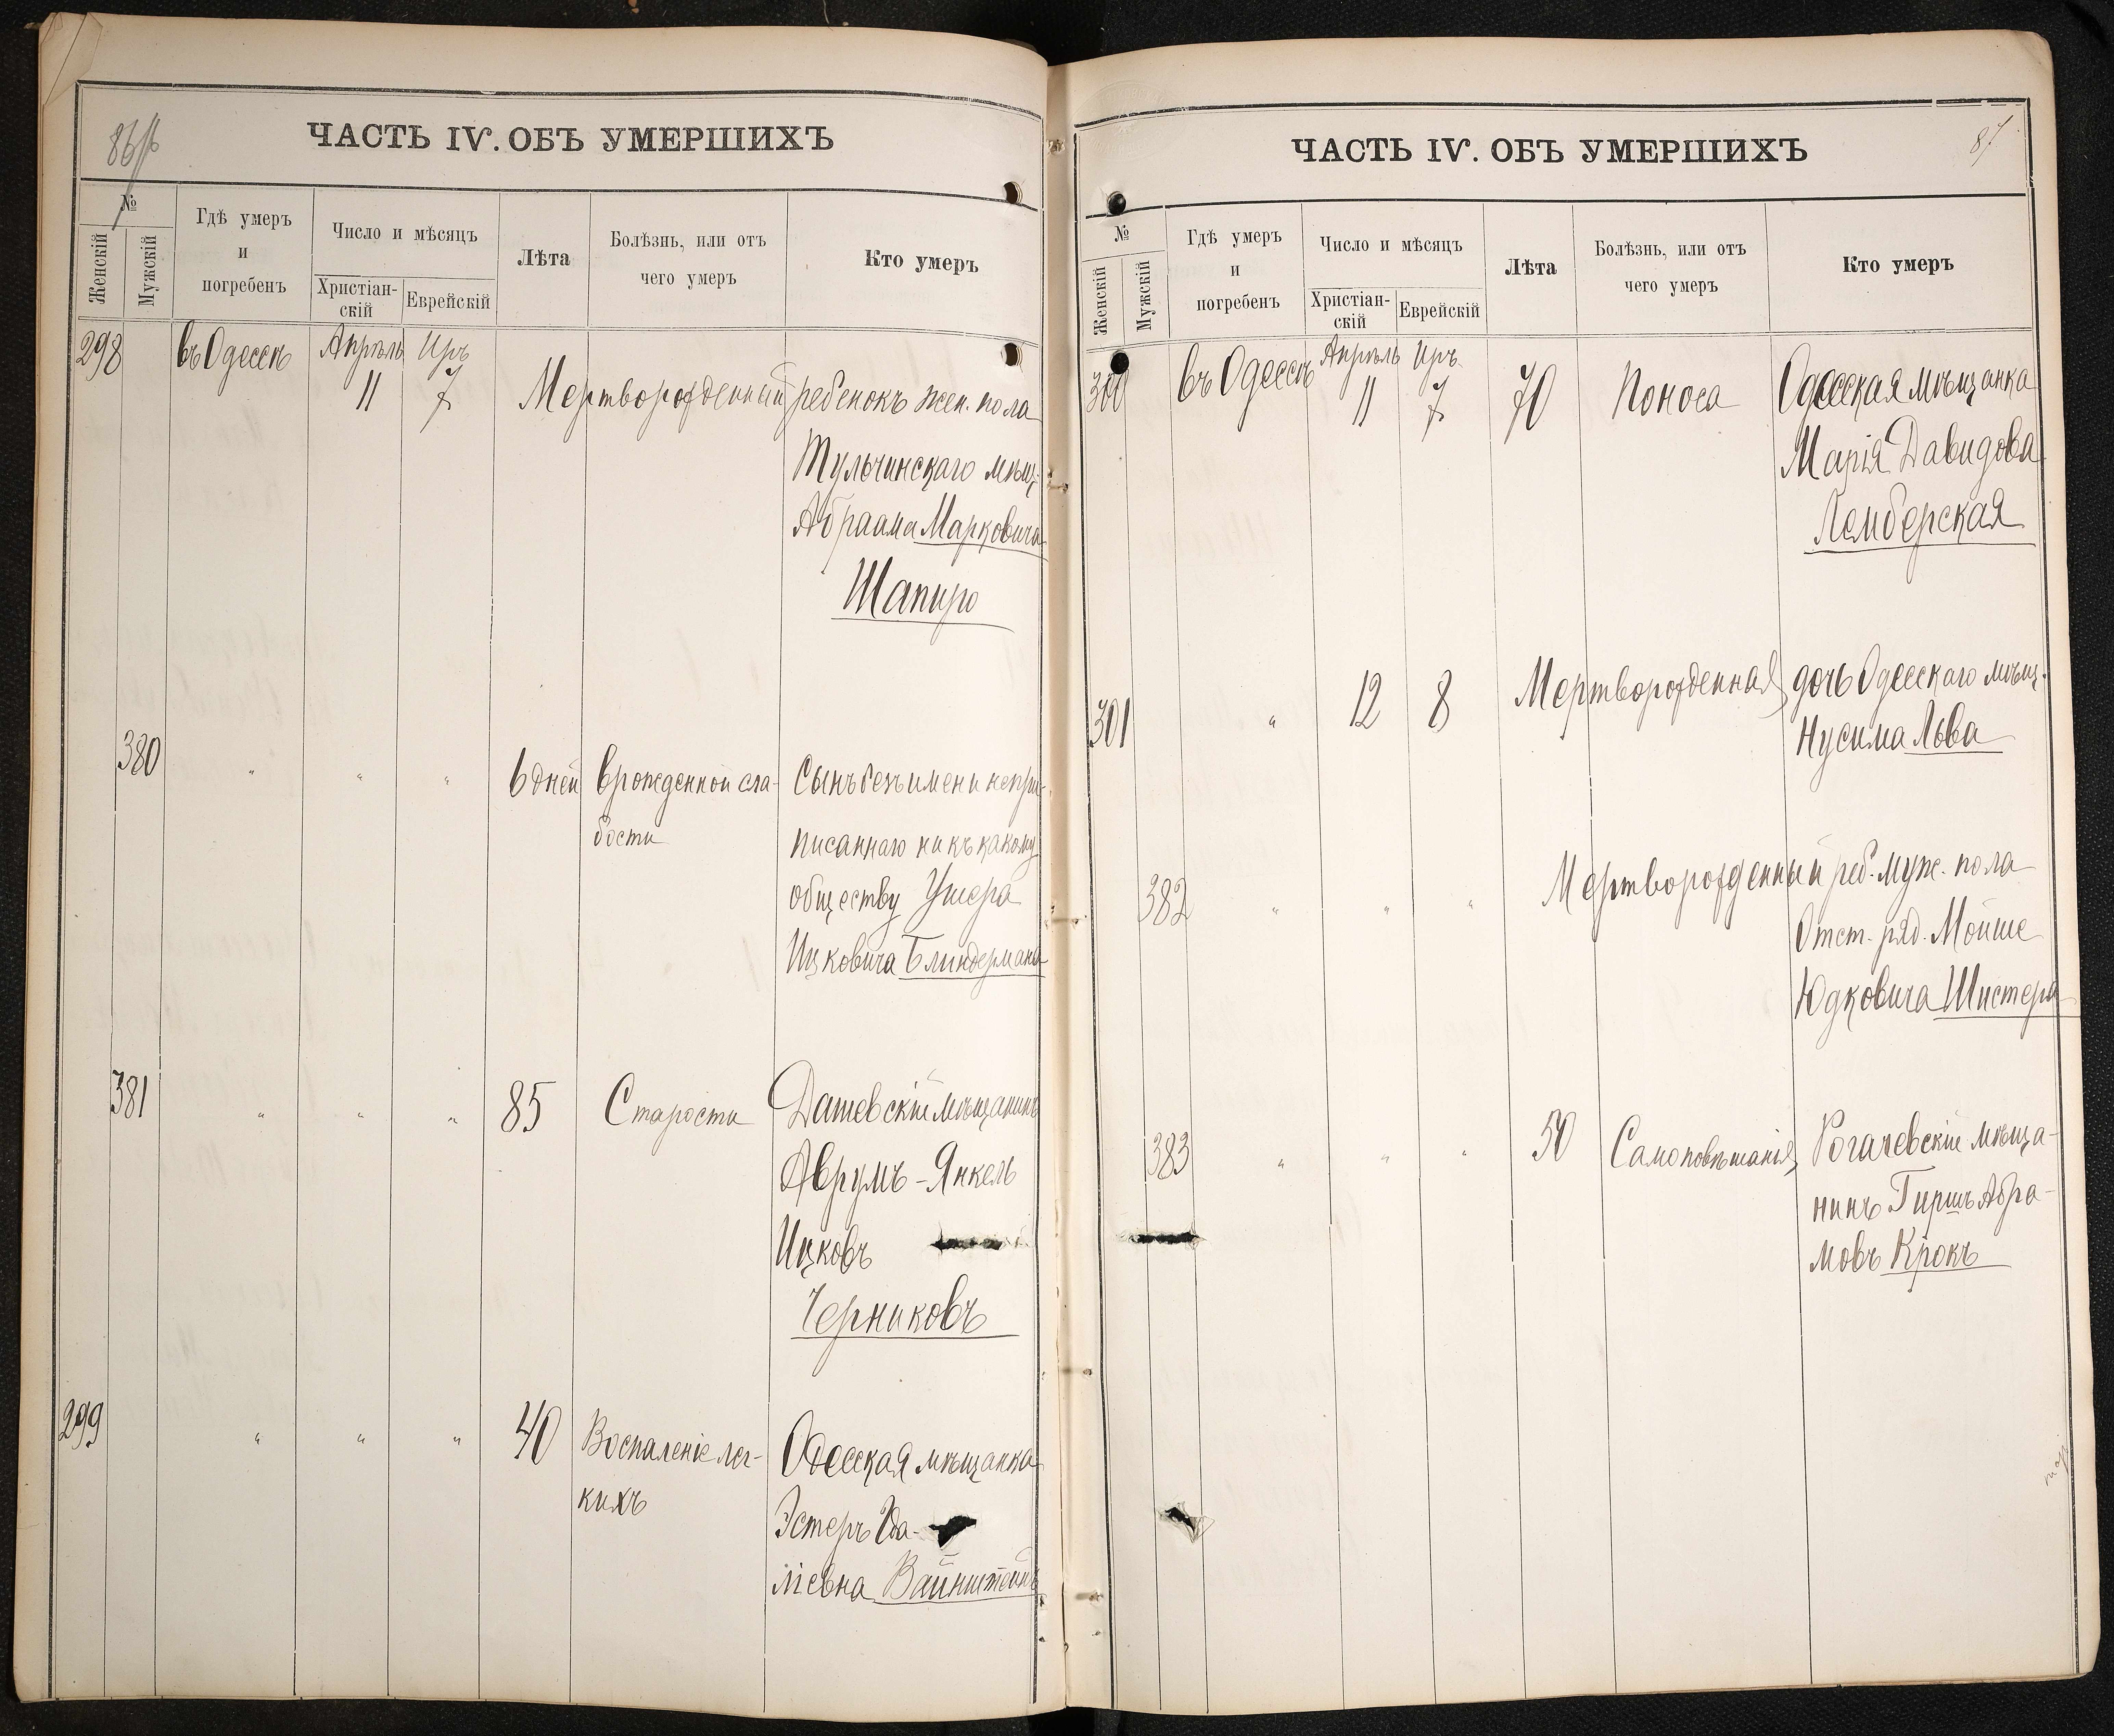 ЧАСТЬ IV. ОБЪ УМЕРШИХЪ
№
Женскій
Мужскій
Гдѣ умеръ
и
погребенъ
Число и мѣсяцъ
Христіан-
скій
Еврейскій
Лѣта
Болѣзнь, или отъ
чего умеръ
Кто умеръ
298 въ Одессѣ Апрѣль Иръ
11 7 Мертворожденный ребенокъ жен. пола
Тульчинскаго мѣщ.
Абраама Марковича
Шапиро
380 " " " 6 дней врожденной сла- Сынъ безъ имени непри-
бости писаннаго ни къ какому
обществу Ушера
Ицковича Блиндермана
381 " " " 85 Старости Дашевскій мѣщанинъ
Аврумъ-Янкель
Ицковъ
Черниковъ
299 " " " 40 Воспаленіе лег- Одесская мѣщанка
кихъ Эстеръ Гда-
ліевна Вайнштейнъ
ЧАСТЬ IV. ОБЪ УМЕРШИХЪ 87
№
Женскій
Мужскій
Гдѣ умеръ
и
погребенъ
Число и мѣсяцъ
Христіан-
скій
Еврейскій
Лѣта
Болѣзнь, или отъ
чего умеръ
Кто умеръ
300 въ Одессѣ Апрѣль Иръ
11 7 70 Поноса Одесская мѣщанка
Марія Давидова
Лемберская
301 " 12 8 Мертворожденная дочь Одесскаго мѣщ.
Нусима Льва
382 " " " Мертворожденный реб. муж. пола
Отст. ряд. Мойше
Юдковича Шистера
383 " " " 50 Самоповѣшанія Рогачевскій мѣща-
нинъ Гиршъ Абра-
мовъ Крокъ